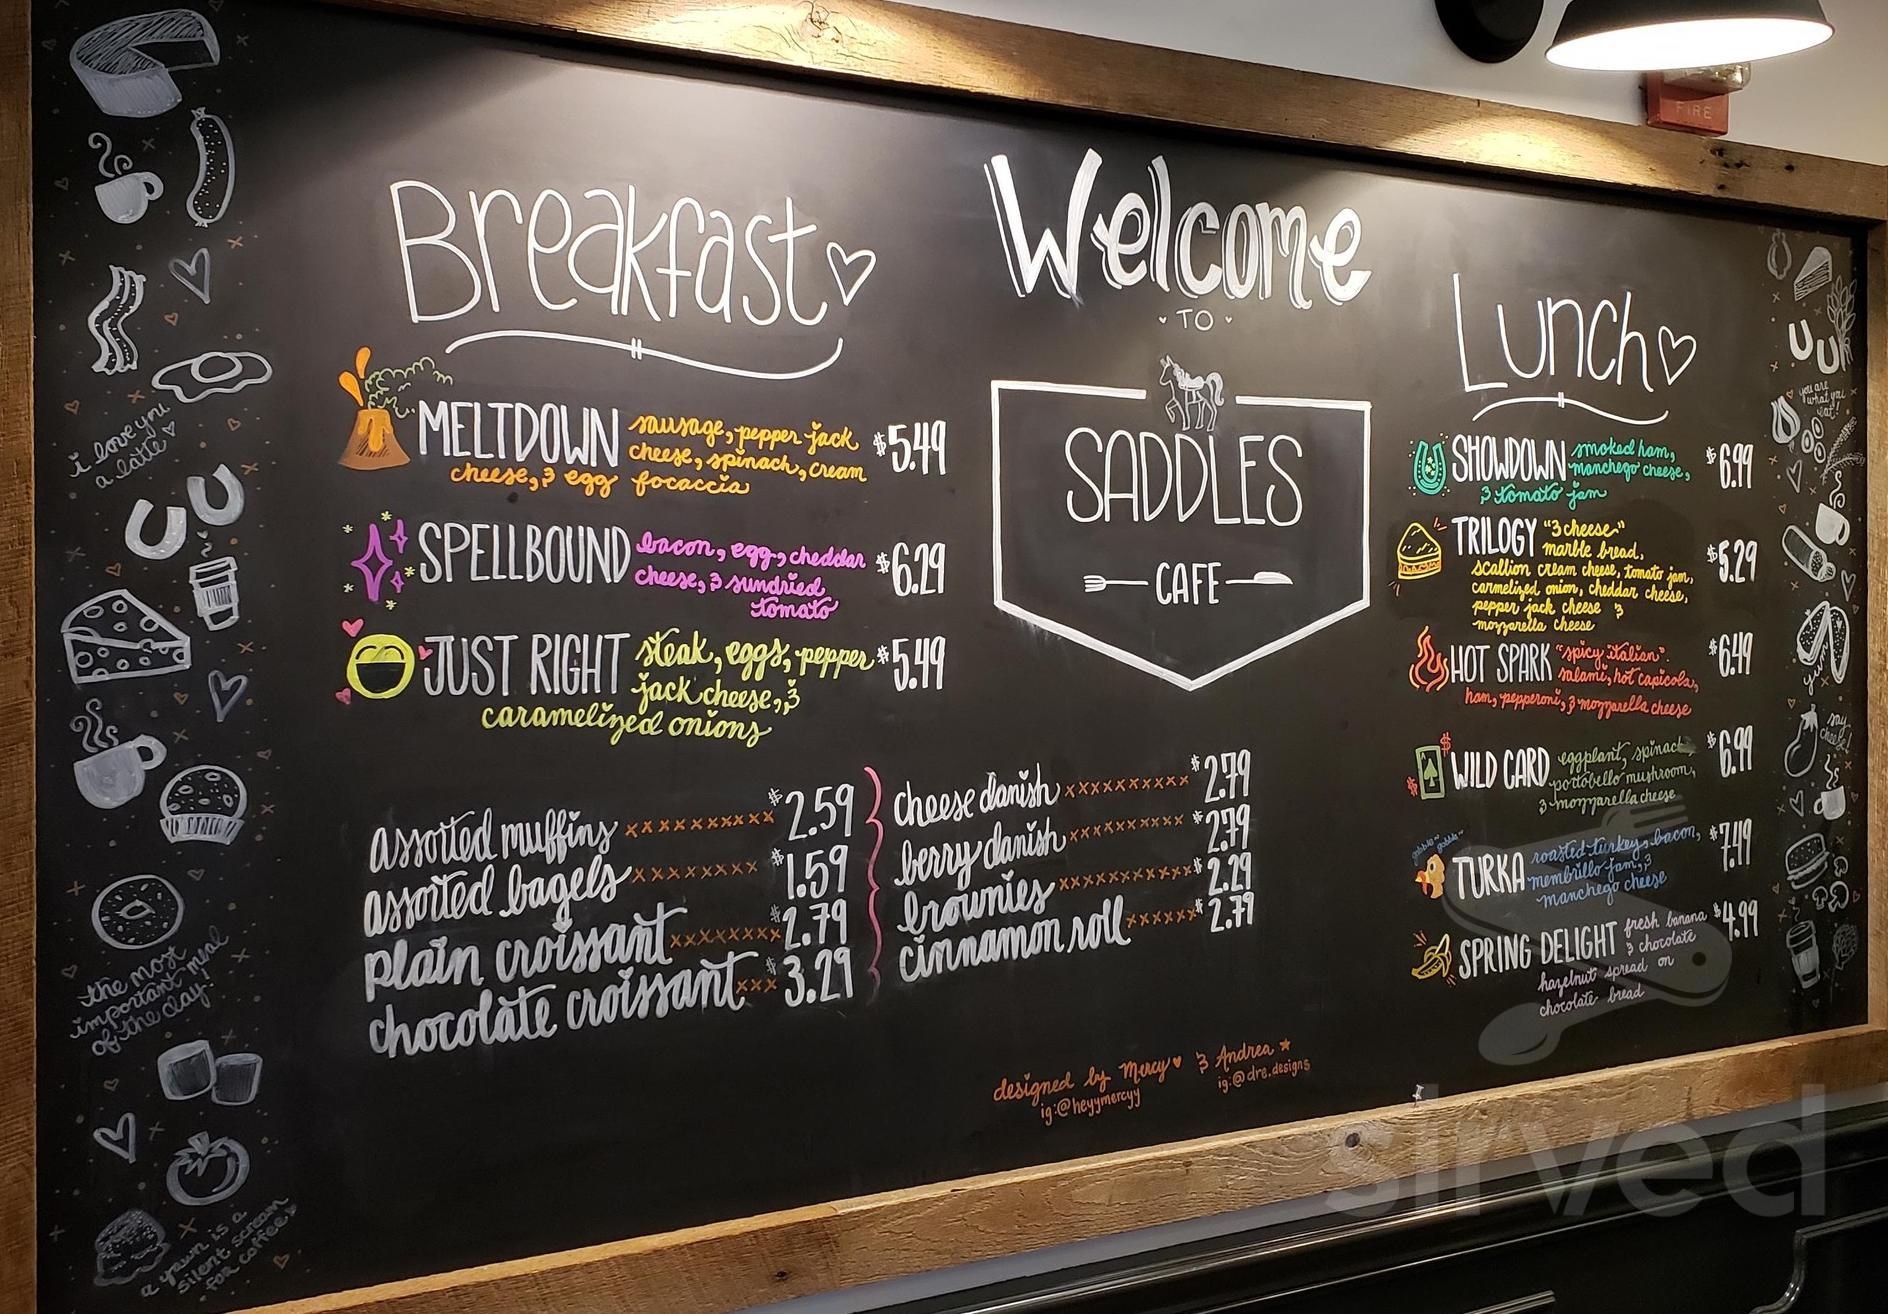 Breakfast
MELTDOWN sausage, pepper jack $5.49
cheese, spinach, cream
cheese, & egg focaccia
SPELLBOUND bacon, egg, cheddar $6.29
cheese, & sundried
tomato
JUST RIGHT steak, eggs, pepper $5.49
jack cheese, &
caramelized onions
assorted muffins xxxxxxxxx $2.59
assorted bagels xxxxxxxxx $1.59
plain croissant xxxxxxxx $2.79
chocolate croissant xxx $3.29
cheese danish xxxxxxxxxx $2.79
berry danish xxxxxxxxxx $2.79
brownies xxxxxxxxxxx $2.29
cinnamon roll xxxxxx $2.79
Welcome
TO
SADDLES
CAFE
designed by Mercy & Andrea
ig:@heyymercyy ig:@dre.designs
Lunch
SHOWDOWN smoked ham, $6.99
manchego cheese,
& tomato jam
TRILOGY "3 cheese" $5.29
marble bread,
scallion cream cheese, tomato jam,
caramelized onion, cheddar cheese,
pepper jack cheese &
mozzarella cheese
HOT SPARK "spicy italian" $6.49
salami, hot capicola,
ham, pepperoni, & mozzarella cheese
WILD CARD eggplant, spinach, $6.99
portobello mushroom,
& mozzarella cheese
"gobble gobble"
TURKA roasted turkey, bacon, $7.49
membrillo jam, &
manchego cheese
SPRING DELIGHT fresh banana $4.99
& chocolate
hazelnut spread on
chocolate bread
i love you
a latte
the most
important meal
of the day!
a yawn is a
silent scream
for coffee
you are
what you
eat!
yum
say
cheese!
FIRE
sirved